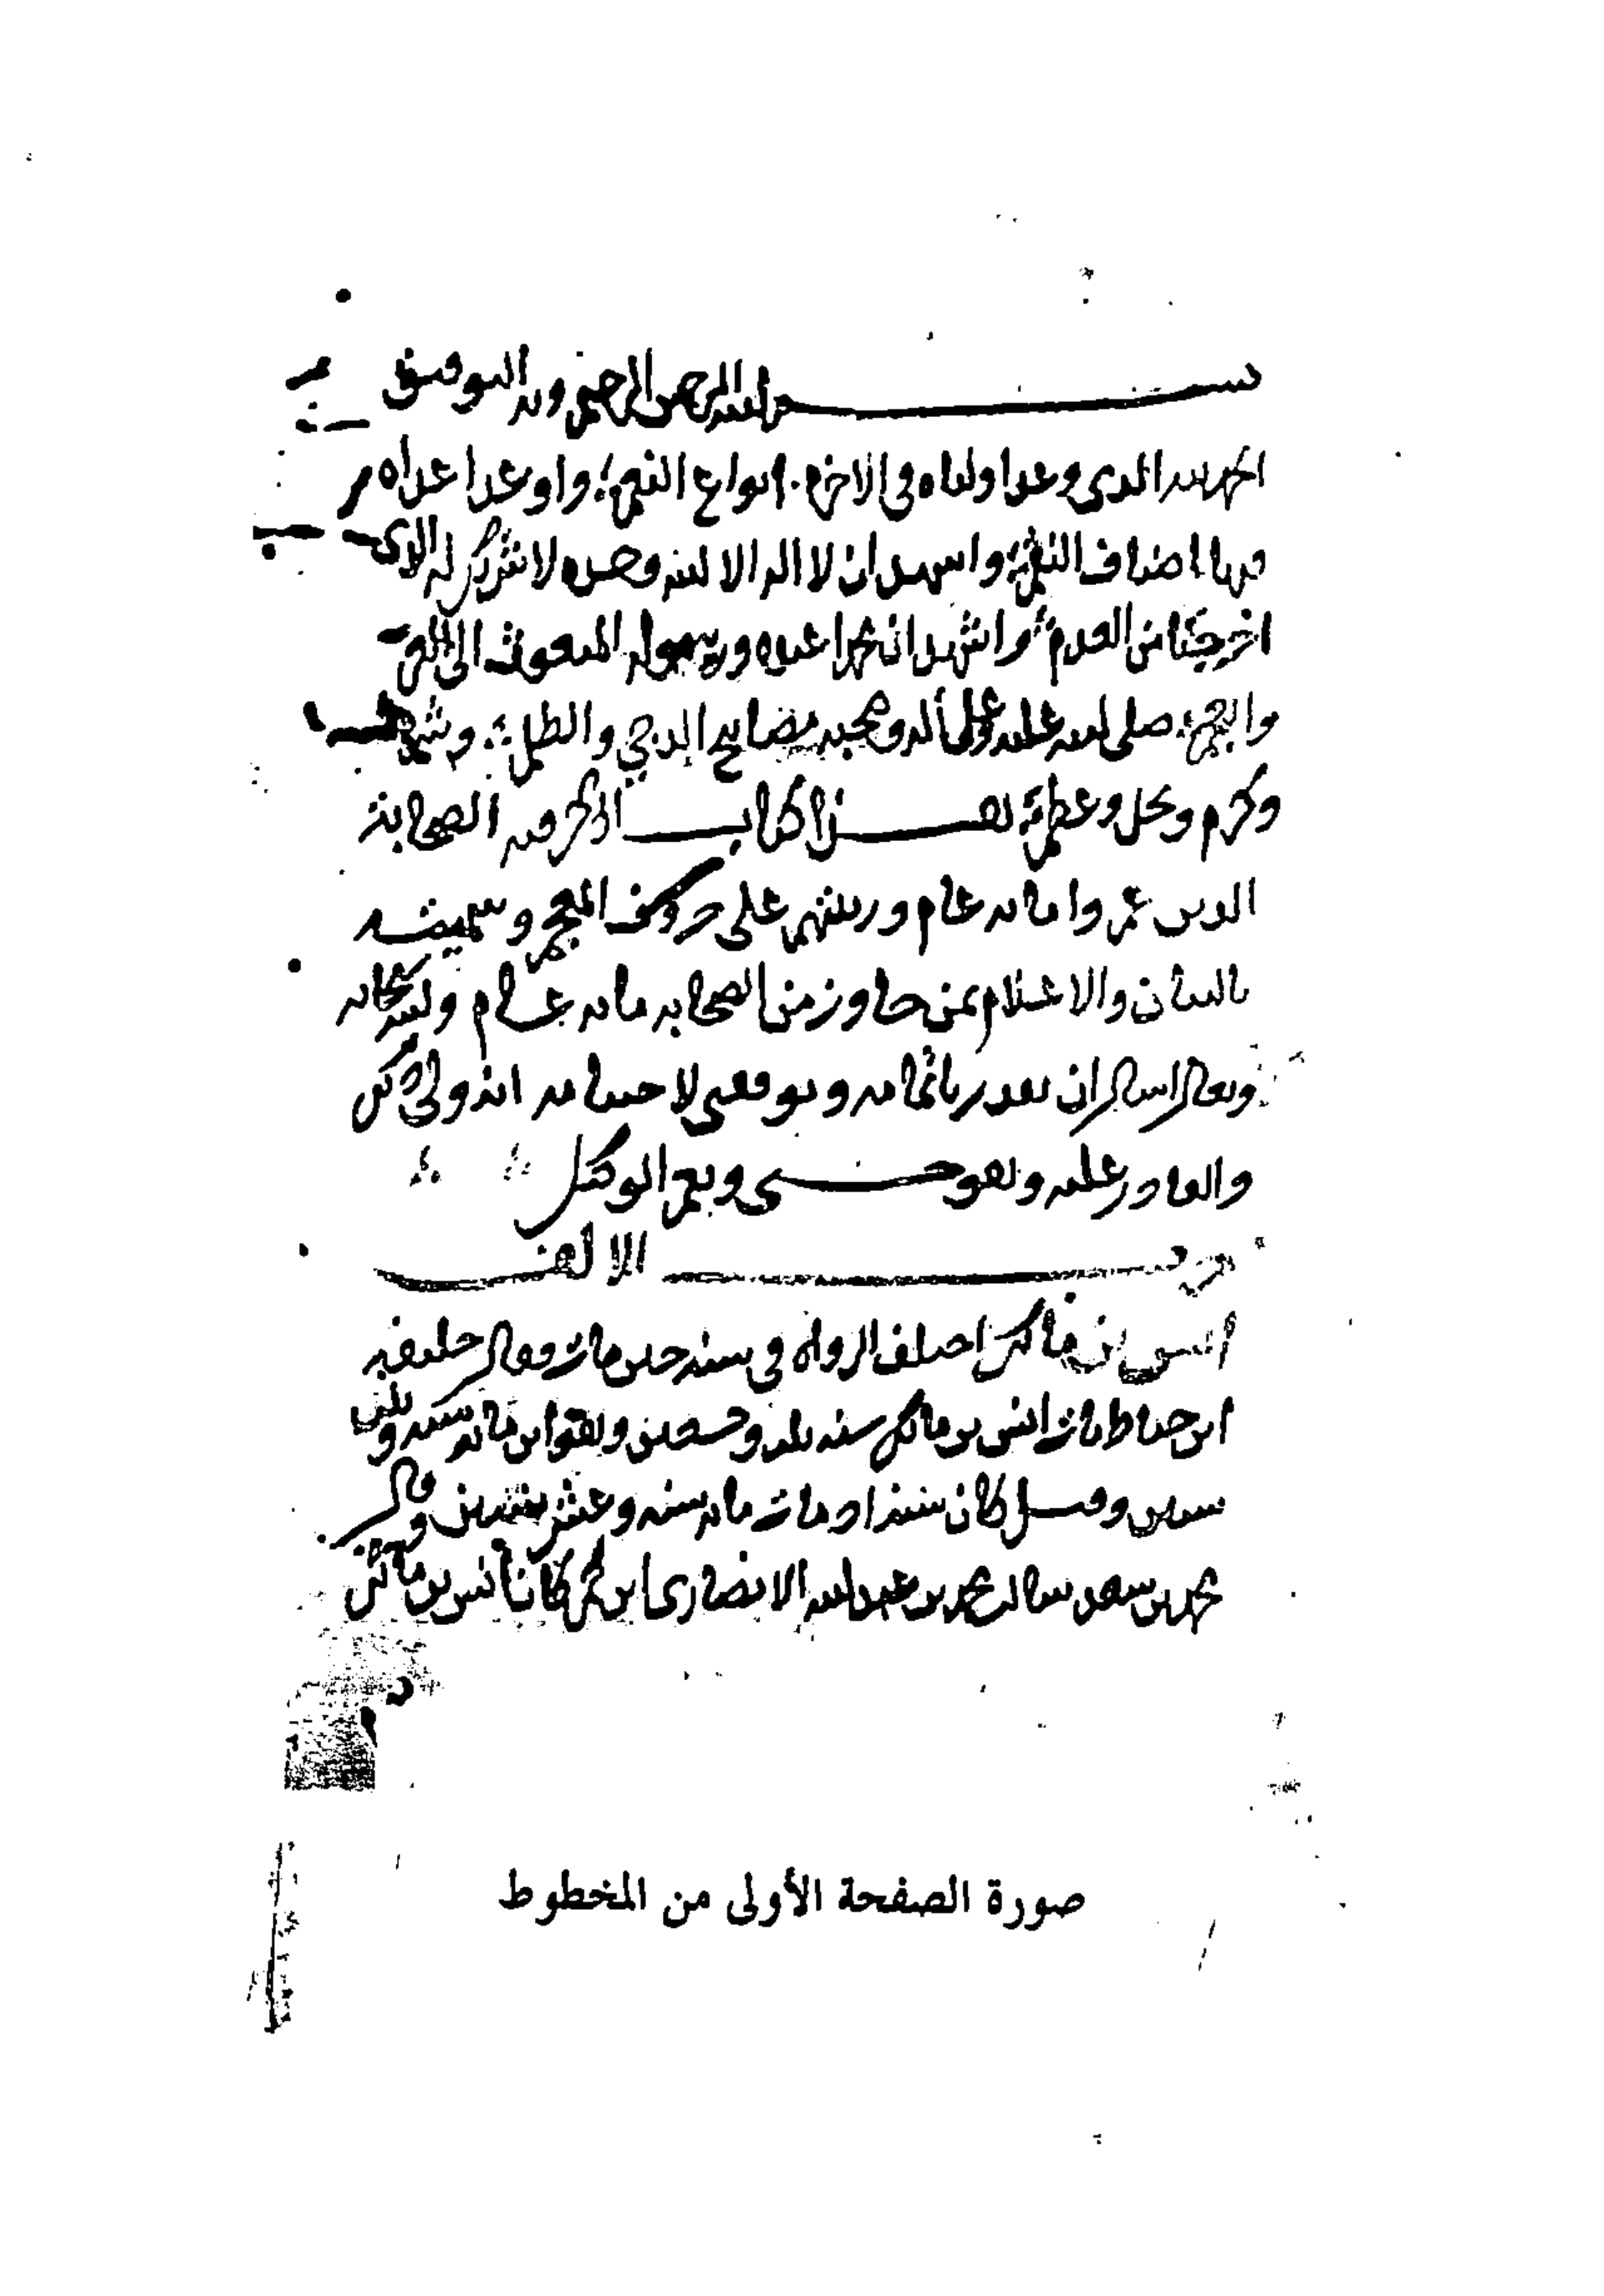 بسم الله الرحمن الرحيم وبه التوفيق
الحمد لله الذي وعد اولياه في الاخرة انواع النعم واوعد اعداه
فيها اصناف النقم واشهد ان لا اله الا الله وحده لا شريك له الذي
اخرجنا من العدم واشهد ان محمدا عبده ورسوله المبعوث الى العرب
والعجم صلى الله عليه وعلى آله وصحبه مصابيح الدجى والظلم وشرف
وكرم وبجل وعظم فهذا كتاب اذكر فيه الصحابة
الذين عمروا مائة عام ورتبتهم على حروف المعجم وسميته
بالبيان والاعلام بمن جاوز من الصحابة مائة عام والله سبحانه
وتعالى اسال ان يقدر باتمامه ويوفقني لاختتامه انه ولي ذلك
والقادر عليه وهو حسبي ونعم الوكيل
حرف الالف
انس بن مالك اختلف الرواة في سنه حين مات فقال خليفة
ابن خياط مات انس بن مالك سنة ثلاث وتسعين وهو ابن مائة سنة وثلاث
سنين وقيل كان سنه اذ مات مائة سنة وعشر سنين وقال
محمد بن سعد سالت محمد بن عبد الله الانصاري ابن كم كان انس بن مالك
صورة الصفحة الأولى من المخطوط